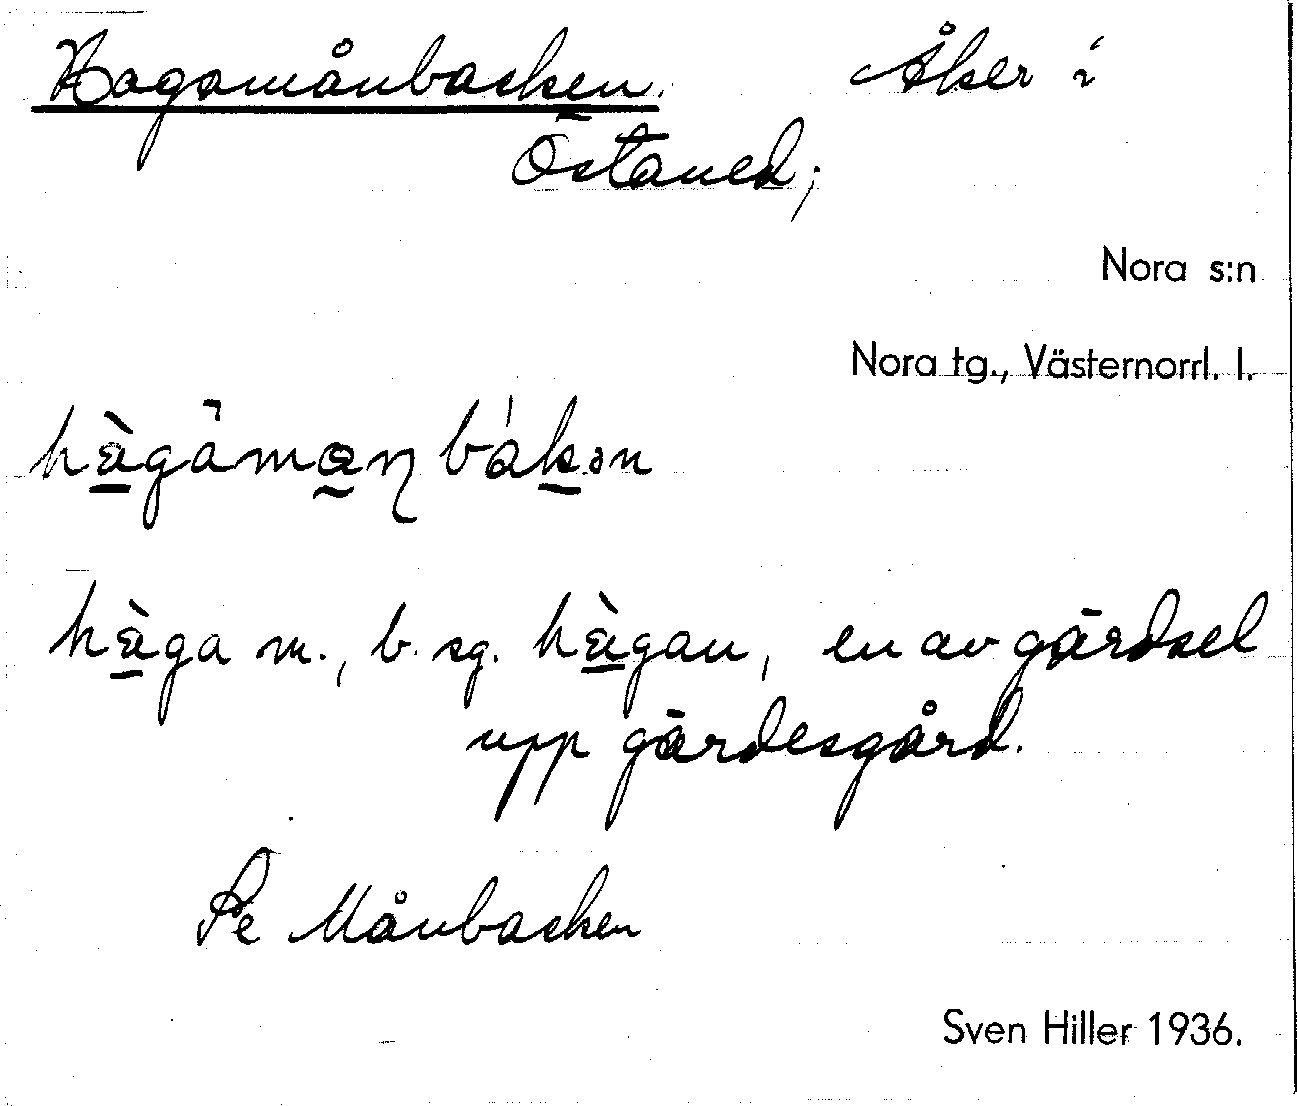 Hagamånbacken. Åker i
Östaned;
Nora s:n
Nora tg., Västernorrl. l.
hàgàmaŋbákən
hàga m., b. sg. hàgan, en av gärdsel
upp gärdesgård.
Se Månbacken
Sven Hiller 1936.